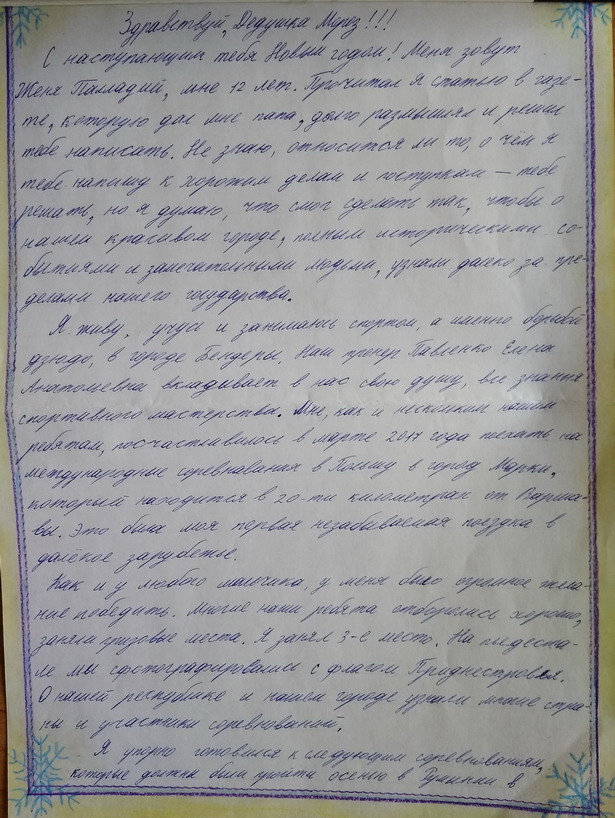 Здравствуй, Дедушка Мороз!!!
С наступающим тебя Новым годом! Меня зовут
Женя Палладий, мне 12 лет. Прочитал я статью в газе-
те, которую дал мне папа, долго размышлял и решил
тебе написать. Не знаю, относится ли то, о чём я
тебе напишу к хорошим делам и поступкам — тебе
решать, но я думаю, что смог сделать так, чтобы о
нашем красивом городе, полным историческими со-
бытиями и замечательными людьми, узнали далеко за пре-
делами нашего государства.
Я живу, учусь и занимаюсь спортом, а именно борьбой
дзюдо, в городе Бендеры. Наш тренер Павленко Елена
Анатольевна вкладывает в нас свою душу, все знания
спортивного мастерства. Мне, как и нескольким нашим
ребятам, посчастливилось в марте 2017 года поехать на
международные соревнования в Польшу в город Марки,
который находится в 20-ти километрах от Варша-
вы. Это была моя первая незабываемая поездка в
далёкое зарубежье.
Как и у любого мальчика, у меня было огромное жела-
ние победить. Многие наши ребята отборолись хорошо,
заняли призовые места. Я занял 3-е место. На пьедеста-
ле мы сфотографировались с флагом Приднестровья.
О нашей республике и нашем городе узнали многие стра-
ны и участники соревнований.
Я упорно готовился к следующим соревнованиям,
которые должны были пройти осенью в Румынии в